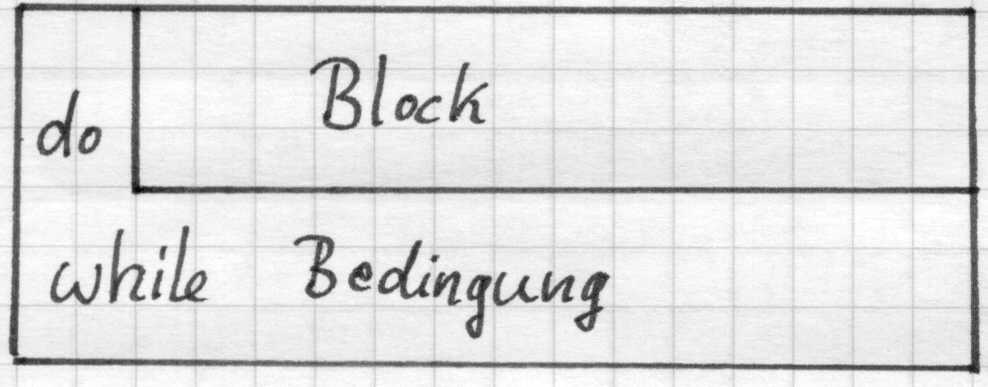 Block
do
while Bedingung